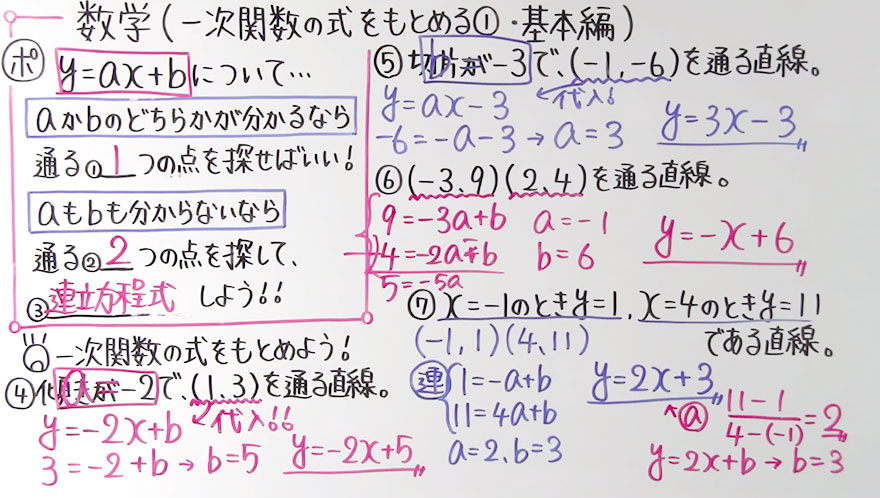 数学(一次関数の式をもとめる①・基本編)
ポ y=ax+bについて…
aかbのどちらかが分かるなら
通る① 1 つの点を探せばいい!
aもbも分からないなら
通る② 2 つの点を探して、
③連立方程式 しよう!!
一次関数の式をもとめよう!
④傾きが-2で、(1.3)を通る直線。
a
代入!!
y=-2x+b
3=-2+b→b=5 y=-2x+5
⑤切片が-3で、(-1,-6)を通る直線。
b
y=ax-3 代入!
-6=-a-3→a=3 y=3x-3
⑥(-3、9)(2、4)を通る直線。
9=-3a+b a=-1
-)4=-2a+b b=6 y=-x+6
5=-5a
⑦x=-1のときy=1、x=4のときy=11
である直線。
(-1,1)(4、11)
連 1=-a+b y=2x+3
11=4a+b
a=2、b=3
ⓐ 11-1/4-(-1)=2
y=2x+b→b=3